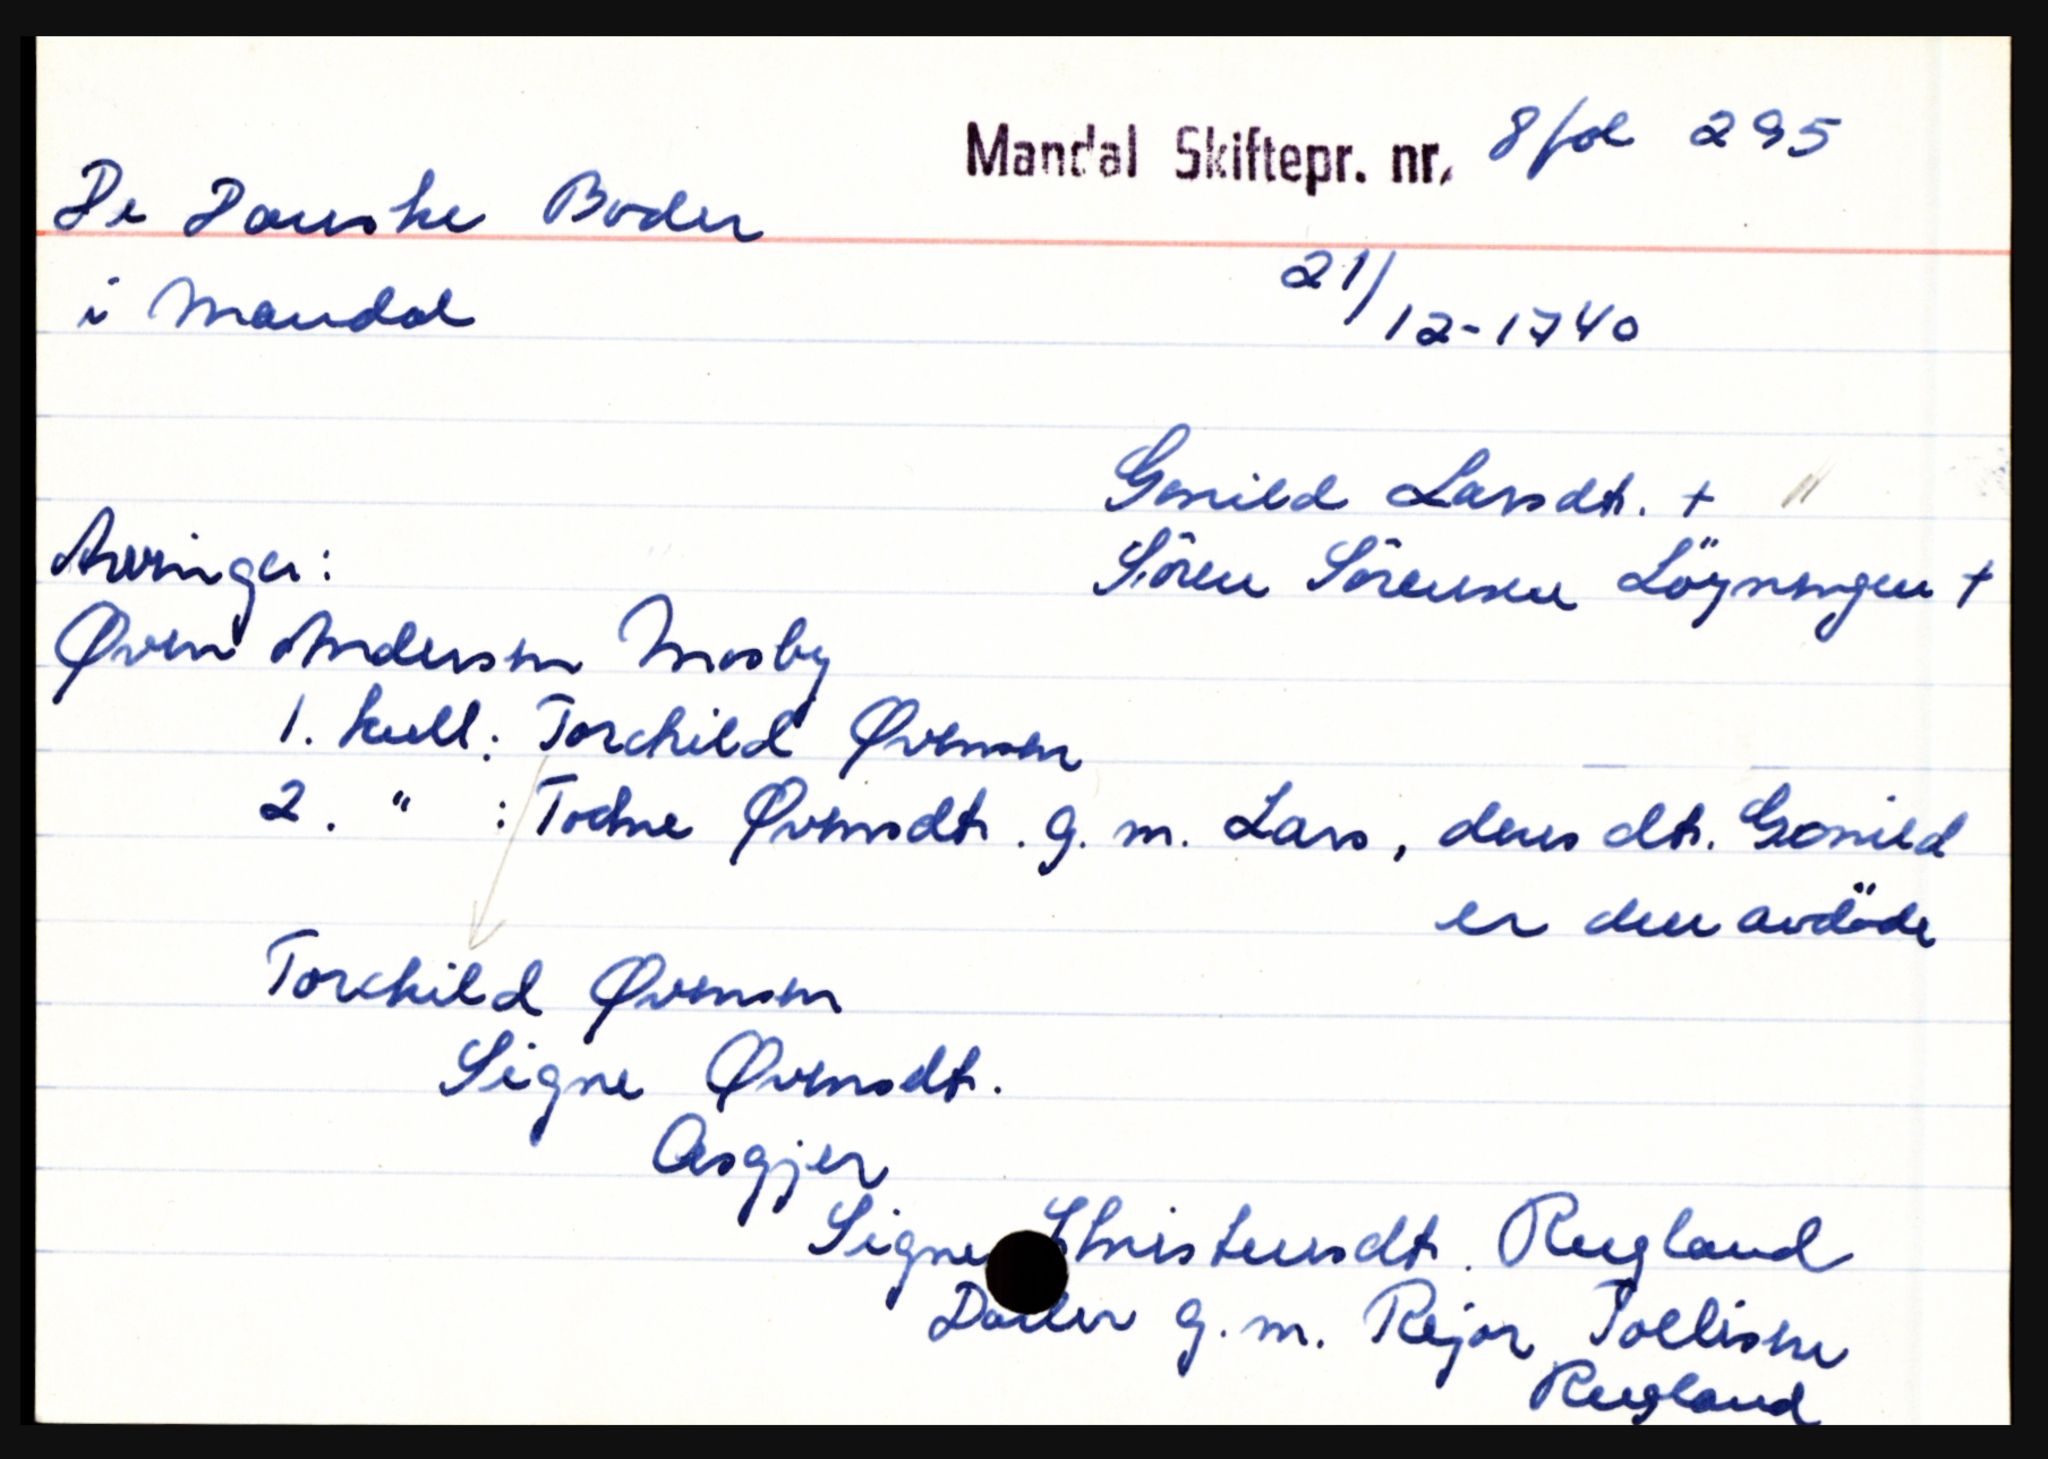 Mandal Skiftepr. nr. 8 fol 295
De Danske Boder
i Mandal
21/12-1740
Gonild Larsdtr. +
Sören Sörensen Löyningen +
Arvinger:
Øven Andersen Mosby
1. kull: Torchild Øvensen
2. " : Todne Øvensdtr. g. m. Lars, deres dtr. Gonild
er den avdöde
Torchild Øvensen
Signe Øvensdtr.
Asgjer
Signe Christensdtr. Rugland
Datter g. m. Rejor Tollisen
Rugland